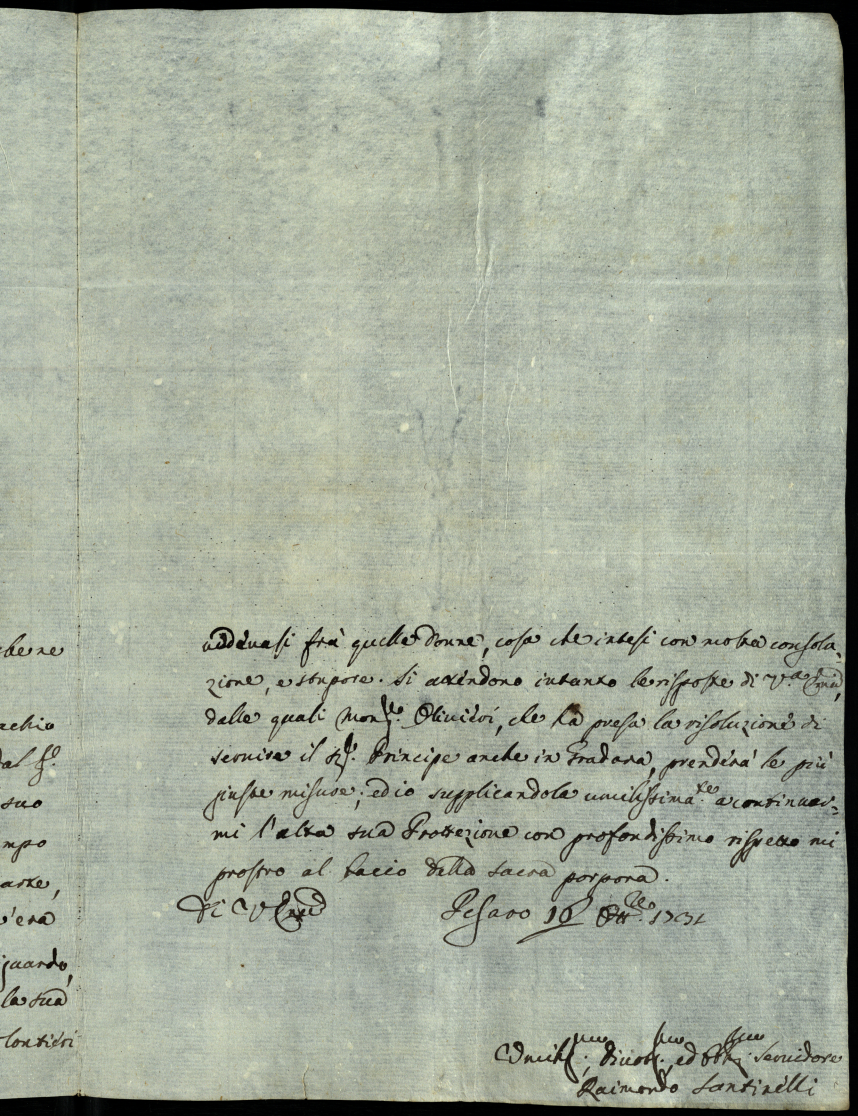 che ne
acchio
dal Sig.
suo
mpo
arte,
v'era
guardo,
la sua
lontieri
uedeuasi frà quelle donne, cosa che intesi con molta consola-
zione, e stupore. Si attendono intanto le risposte di V.a Em.a,
dalle quali Mons.re Oliuieri, che hà presa la risoluzione di
seruire il Sig.r Principe anche in Gradara, prenderà le più
giuste misure; ed io supplicandola umilissima.te a continuar-
mi l'alta sua Protezione con profondissimo rispetto mi
prostro al bacio della sacra porpora.
Di V Em.a Pesaro 16 Ott.re 1731
Umiliss.mo, Diuotiss.mo, ed Obblig.mo Seruidore
Raimondo Santinelli